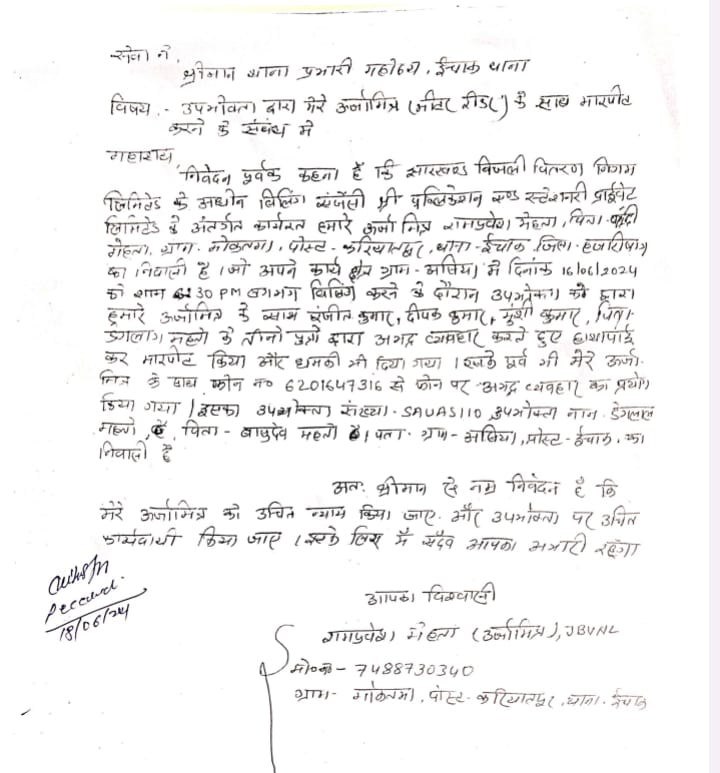 सेवा में,
श्रीमान थाना प्रभारी महोदय, ईचाक थाना
विषय :- उपभोक्ता द्वारा मेरे ऊर्जामित्र (मीटर रीडर) के साथ मारपीट
करने के संबंध में
महाशय,
निवेदन पूर्वक कहना है कि झारखण्ड बिजली वितरण निगम
लिमिटेड के अधीन बिलिंग एजेंसी श्री पब्लिकेशन एण्ड स्टेशनरी प्राईवेट
लिमिटेड के अंतर्गत कार्यरत हमारे ऊर्जा मित्र रामप्रवेश मेहता, पिता-
मेहता, ग्राम- मोकतमा, पोस्ट- करियातपुर, थाना- ईचाक, जिला- हजारीबाग
का निवासी है। जो अपने कार्य क्षेत्र ग्राम- असिया में दिनांक 16/06/2024
को शाम 6:30 PM लगभग बिलिंग करने के दौरान उपभोक्ता के द्वारा
हमारे ऊर्जामित्र के साथ रंजीत कुमार, दीपक कुमार, मुंशी कुमार, पिता-
डेगलाल महतो के तीनो पुत्रो द्वारा अभद्र व्यवहार करते हुए हाथापाई
कर मारपीट किया और धमकी भी दिया गया। इसके पूर्व भी मेरे ऊर्जा-
मित्र के साथ फोन न० 6201647316 से फोन पर अभद्र व्यवहार का प्रयोग
किया गया। इसका उपभोक्ता संख्या- SAUAS110 उपभोक्ता नाम- डेगलाल
महतो, है, पिता- बासुदेव महतो है। पता- ग्राम- असिया, पोस्ट- ईचाक, का
निवासी है
अतः श्रीमान से नम्र निवेदन है कि
मेरे ऊर्जामित्र को उचित न्याय किया जाए और उपभोक्ता पर उचित
कार्यवाही किया जाए। इसके लिए मैं सदैव आपका आभारी रहूँगा
आपका विश्वासी
रामप्रवेश मेहता (ऊर्जामित्र), JBVNL
मो०न०- 7488730340
ग्राम- मोकतमा, पोस्ट- करियातपुर, थाना- ईचाक
Received
18/06/24